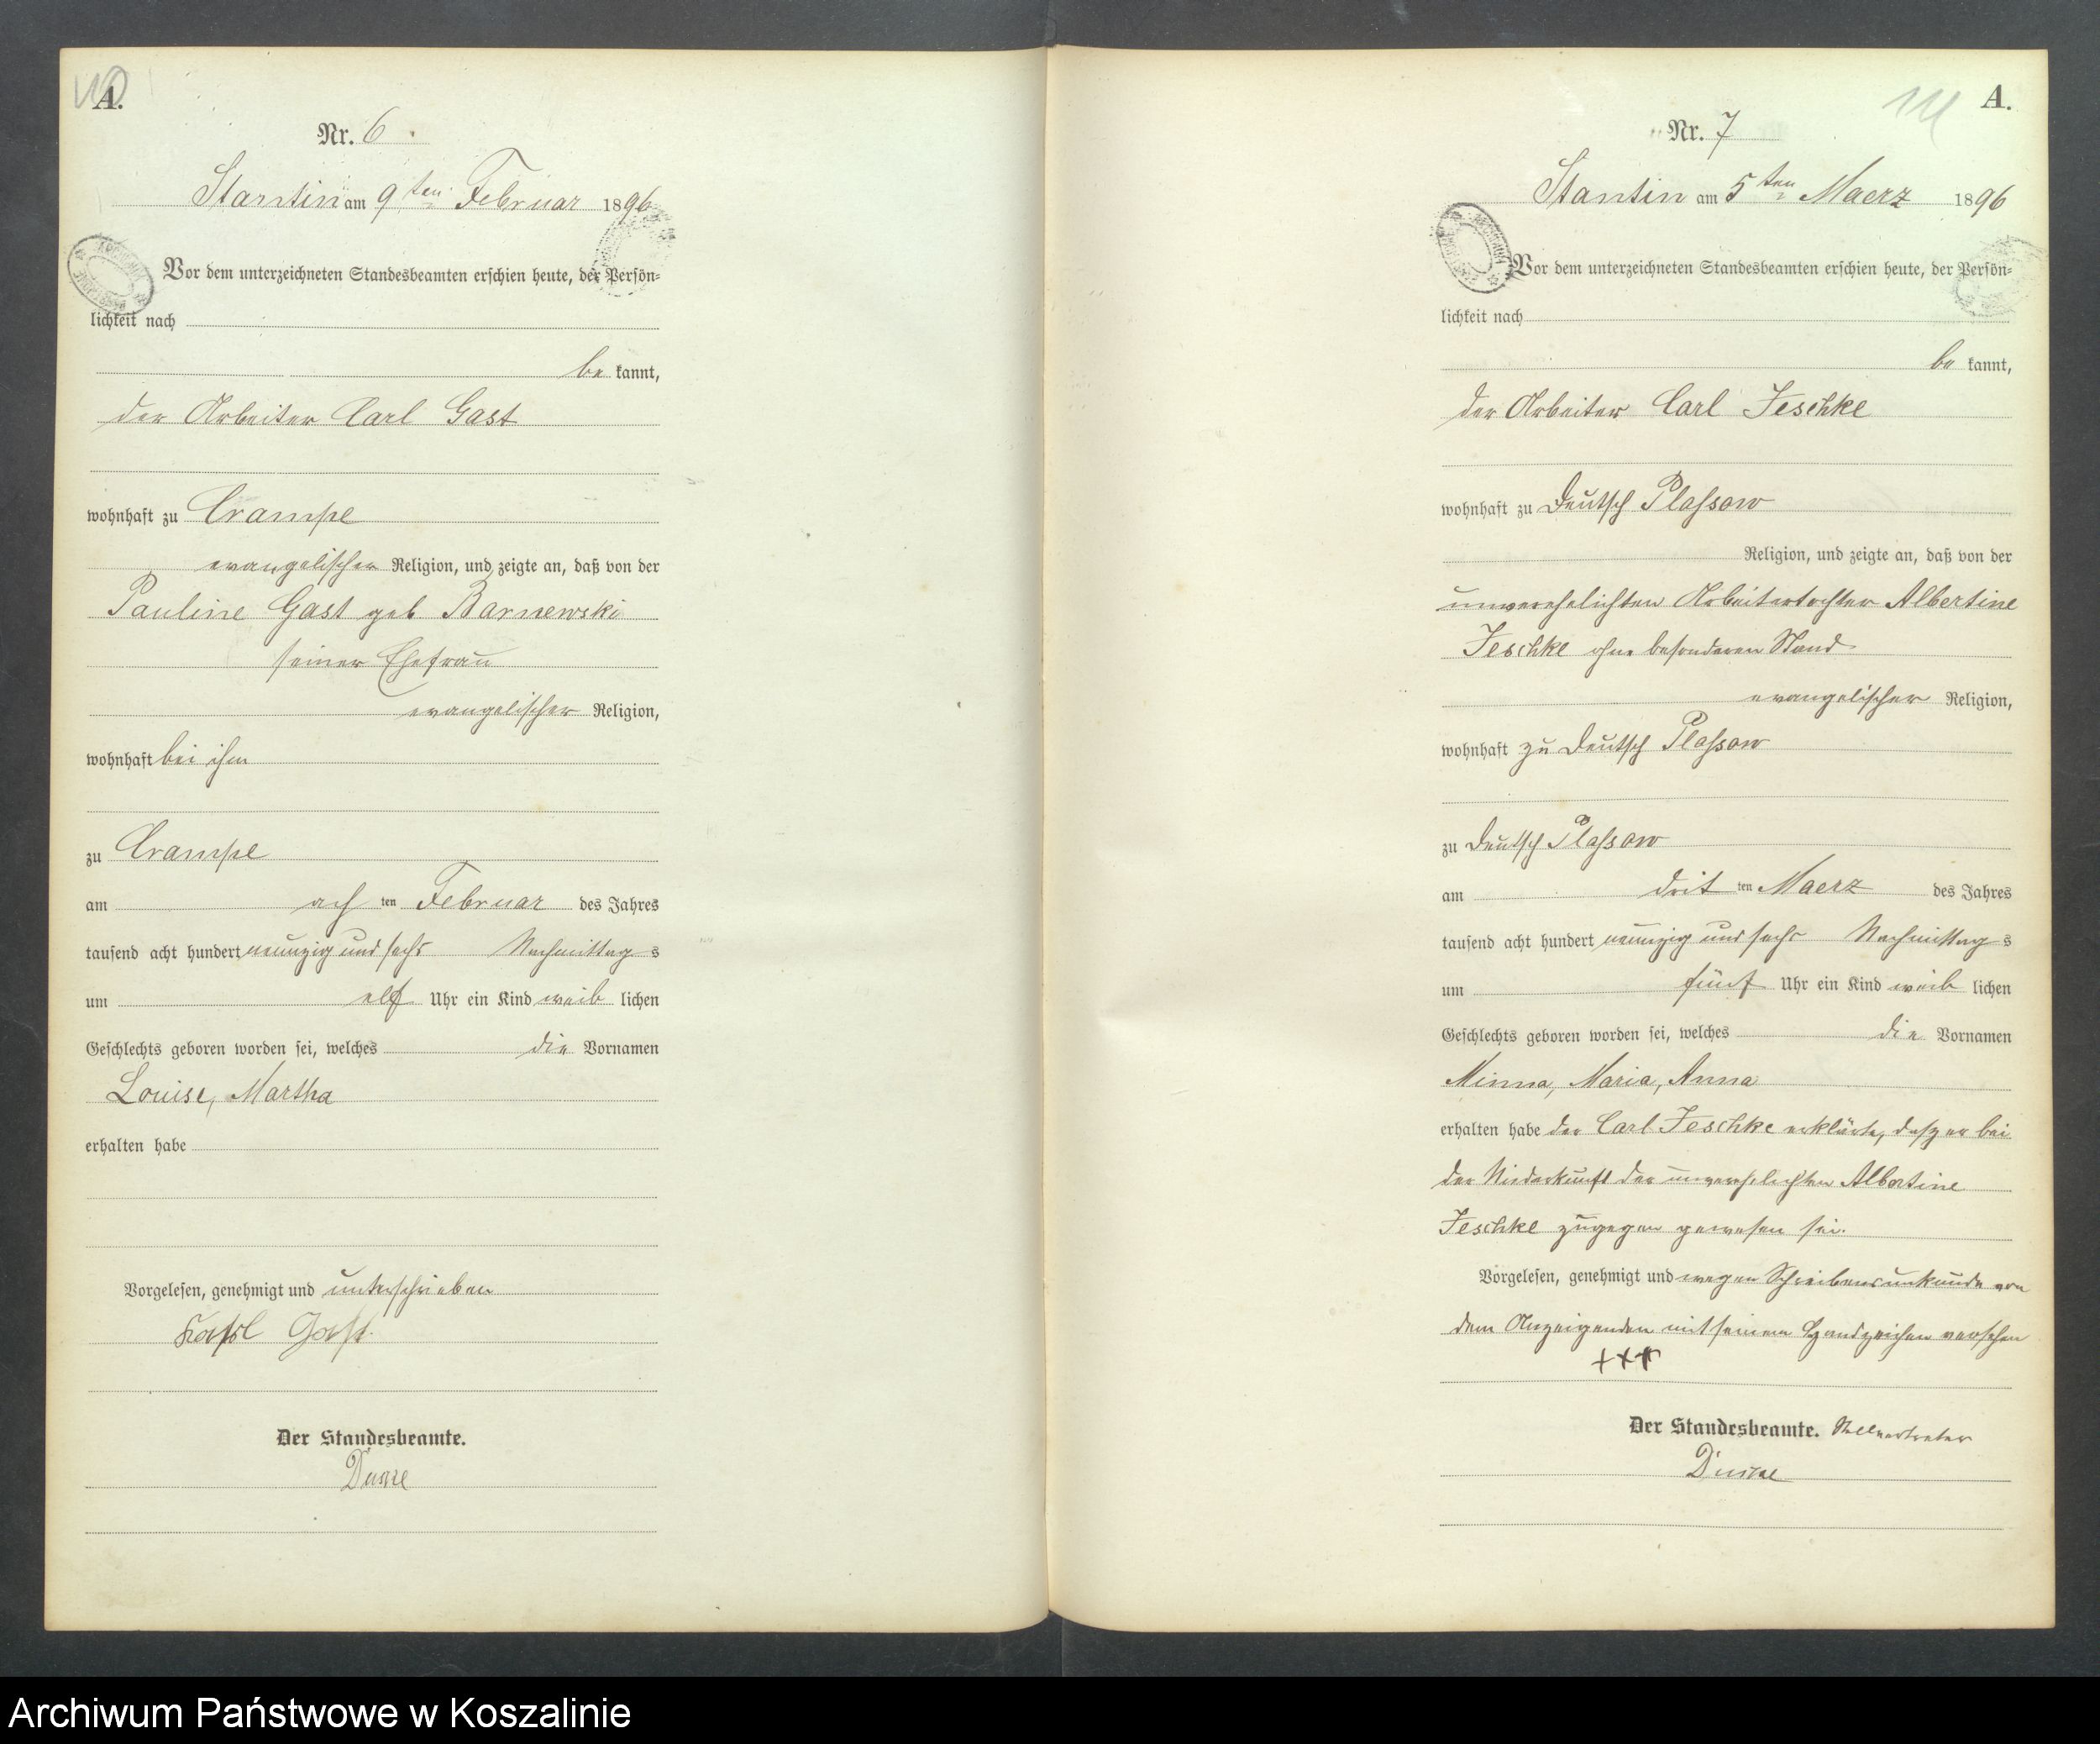 A.
Nr. 6
Stantin am 9ten Februar 1896
Vor dem unterzeichneten Standesbeamten erschien heute, der Persön-
lichkeit nach
be kannt,
der Arbeiter Carl Gast
wohnhaft zu Crampe
evangelischer Religion, und zeigte an, daß von der
Pauline Gast geb Barnewski
seiner Ehefrau
evangelischer Religion,
wohnhaft bei ihm
zu Crampe
am ach ten Februar des Jahres
tausend acht hundert neunzig und sechs Nachmittag s
um elf Uhr ein Kind weib lichen
Geschlechts geboren worden sei, welches die Vornamen
Louise, Martha
erhalten habe
Vorgelesen, genehmigt und unterschrieben
Gast
Der Standesbeamte.
A.
Nr. 7
Stantin am 5ten Maerz 1896
Vor dem unterzeichneten Standesbeamten erschien heute, der Persön-
lichkeit nach
be kannt,
der Arbeiter Carl Jeschke
wohnhaft zu Deutsch Plassow
Religion, und zeigte an, daß von der
unverehelichten Arbeitertochter Albertine
Jeschke ohne besonderen Stand
evangelischer Religion,
wohnhaft zu Deutsch Plassow
zu Deutsch Plassow
am drit ten Maerz des Jahres
tausend acht hundert neunzig und sechs Nachmittag s
um fünf Uhr ein Kind weib lichen
Geschlechts geboren worden sei, welches die Vornamen
Minna, Maria, Anna
erhalten habe der Carl Jeschke erklärte, daß er bei
der Niederkunft der unverehelichten Albertine
Jeschke zugegen gewesen sei.
Vorgelesen, genehmigt und wegen Schreibensunkunde von
dem Anzeigenden mit seinem Handzeichen versehen
+++
Der Standesbeamte. Stellvertreter
Archiwum Państwowe w Koszalinie